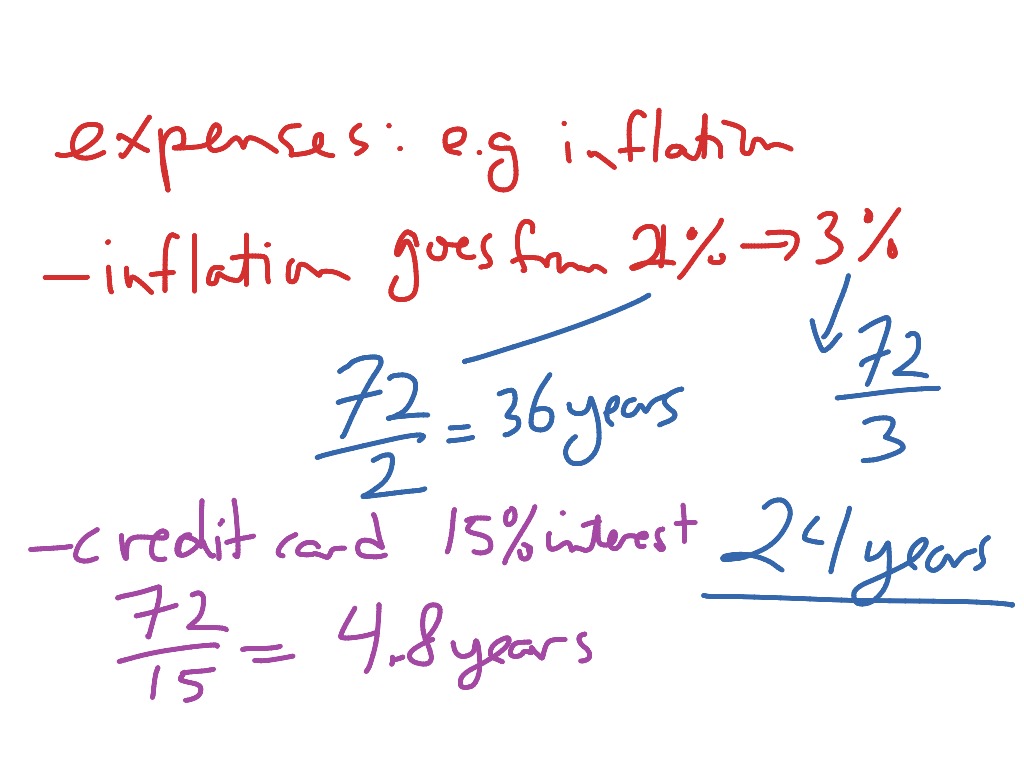 expenses: e.g inflation
- inflation goes from 2% → 3%
72/2 = 36 years
72/3
24 years
- credit card 15% interest
72/15 = 4.8 years